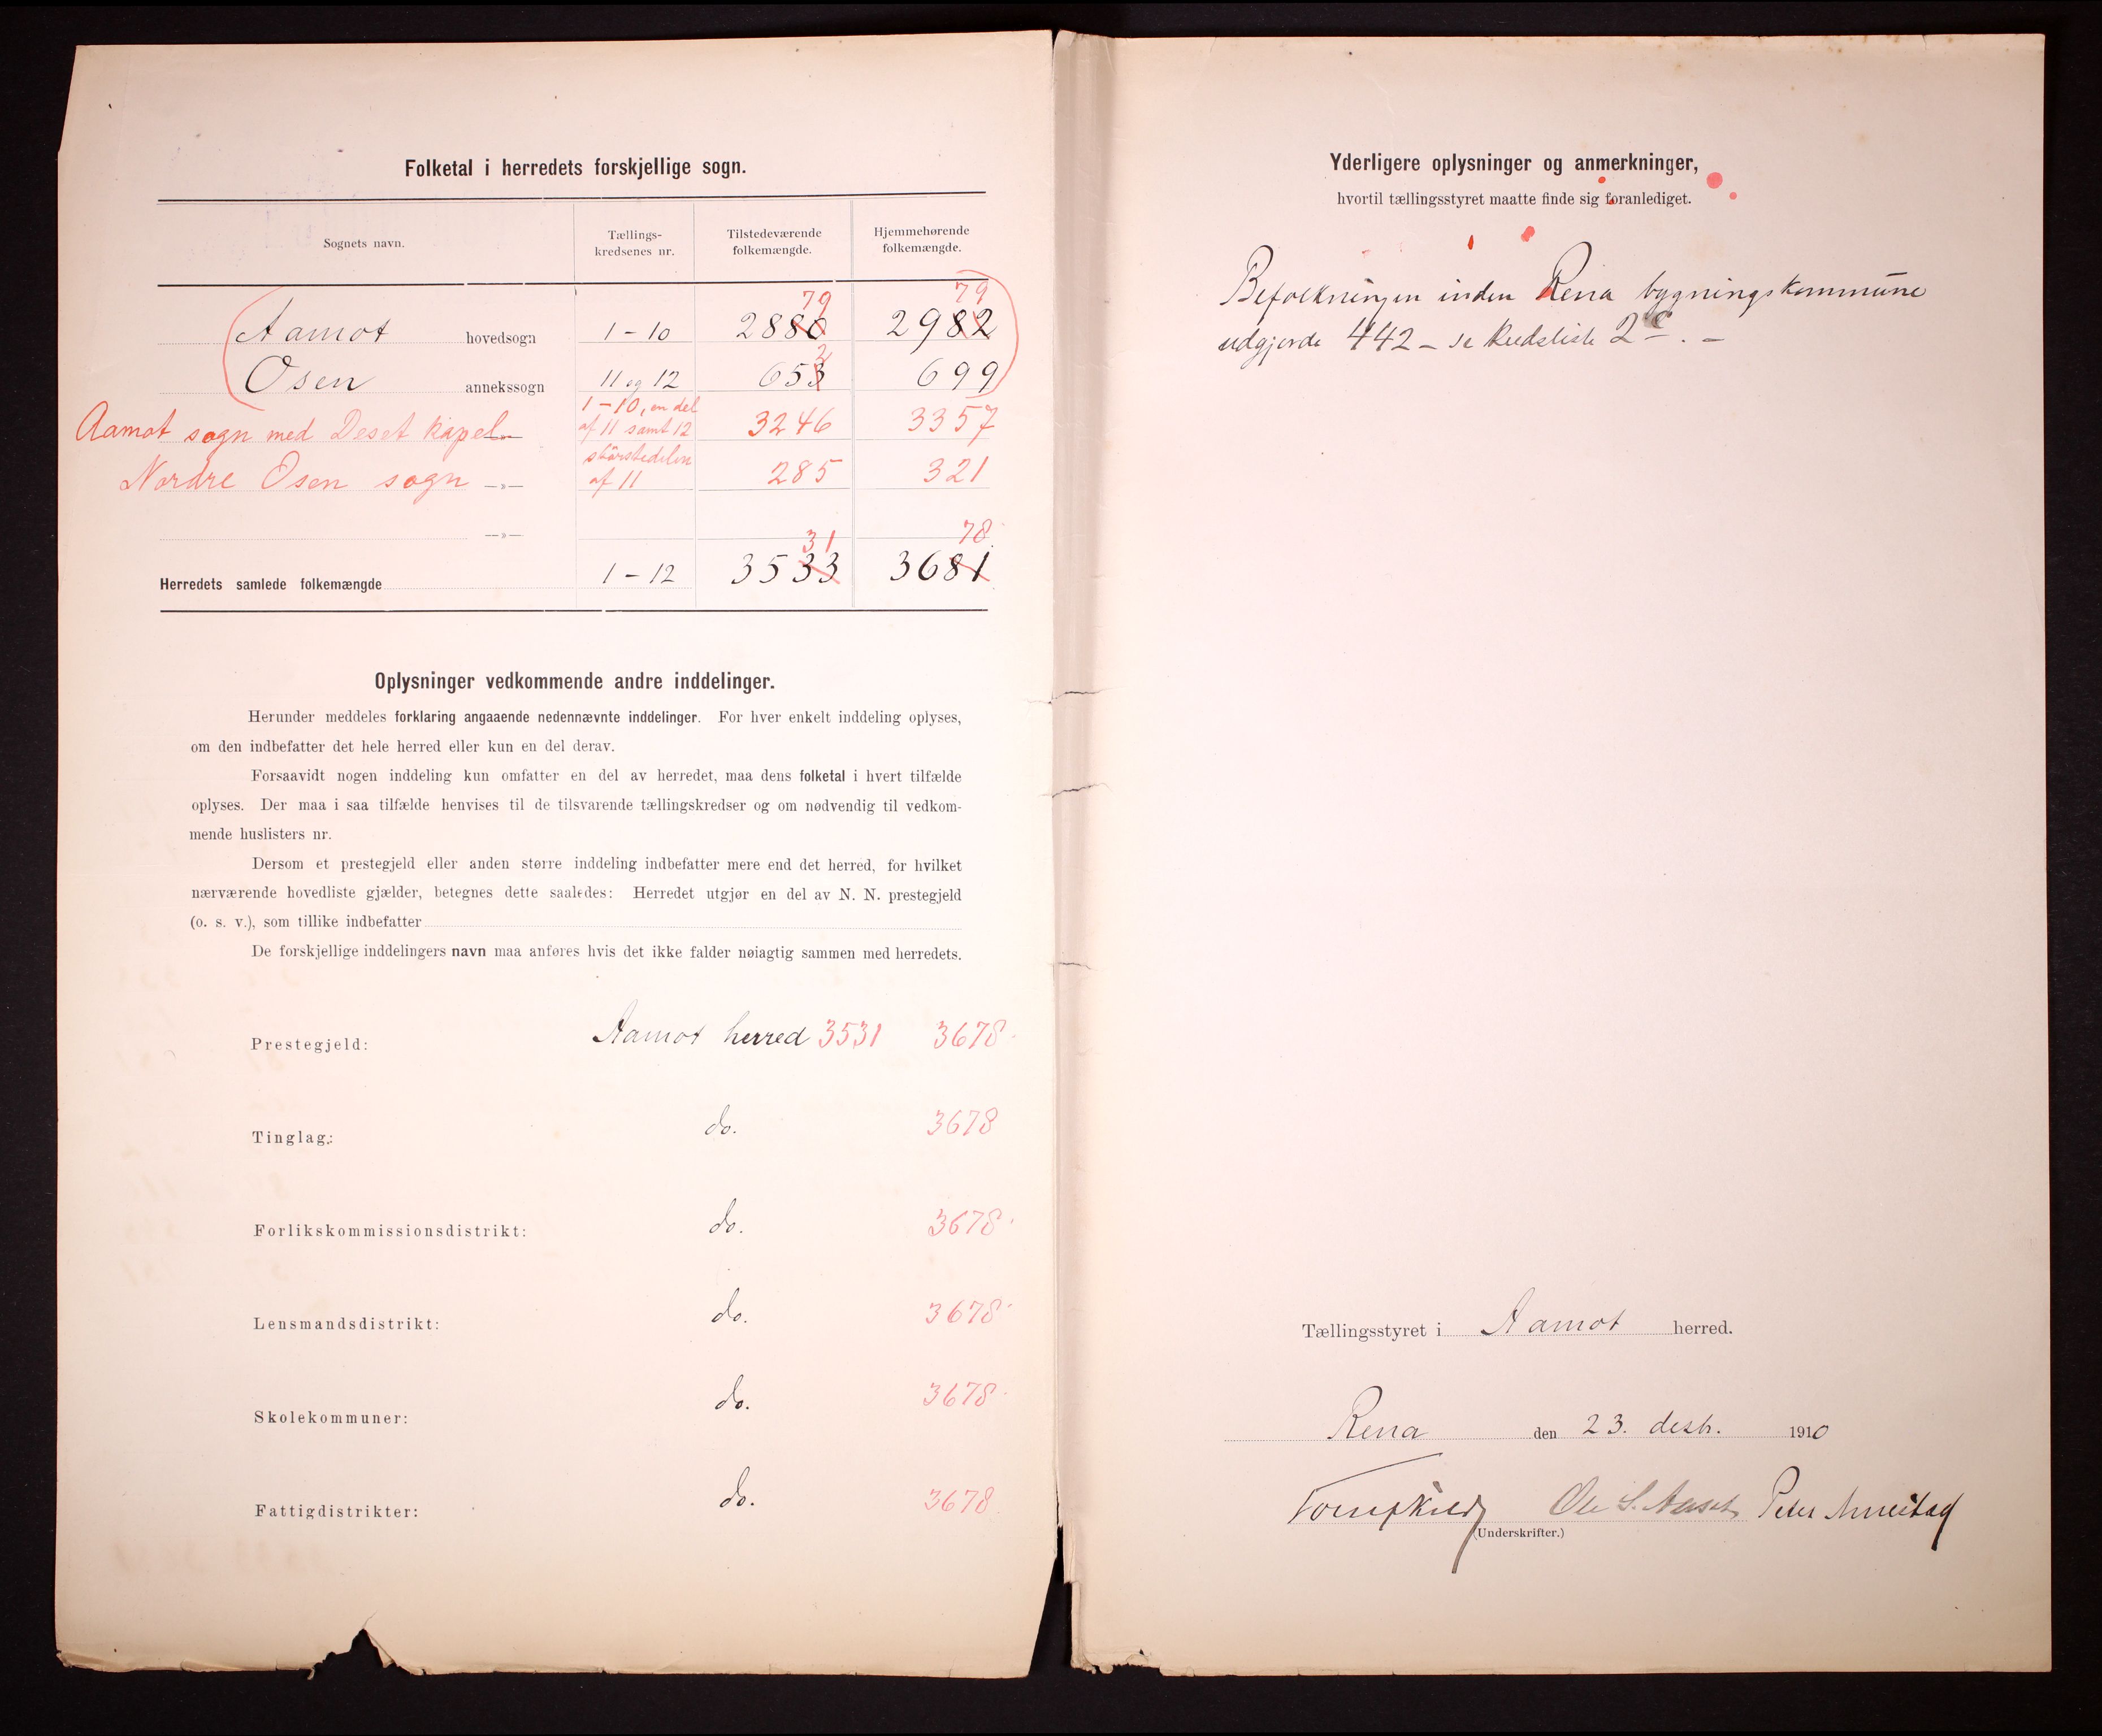 Folketal i herredets forskjellige sogn.
Sognets navn.
Tællings-
kredsenes nr.
Tilstedeværende
folkemængde.
Hjemmehørende
folkemængde.
79 79
Aamot hovedsogn 1-10 2880 2982
2
Osen annekssogn 11 og 12 653 699
Aamot sogn med Deset kapel —»— 1-10, en del af 11 samt 12 3246 3357
Nordre Osen sogn —»— størstedelen af 11 285 321
—»—
31 78
Herredets samlede folkemængde 1-12 3533 3681
Oplysninger vedkommende andre inddelinger.
Herunder meddeles forklaring angaaende nedennævnte inddelinger. For hver enkelt inddeling oplyses,
om den indbefatter det hele herred eller kun en del derav.
Forsaavidt nogen inddeling kun omfatter en del av herredet, maa dens folketal i hvert tilfælde
oplyses. Der maa i saa tilfælde henvises til de tilsvarende tællingskredser og om nødvendig til vedkom-
mende huslisters nr.
Dersom et prestegjeld eller anden større inddeling indbefatter mere end det herred, for hvilket
nærværende hovedliste gjælder, betegnes dette saaledes: Herredet utgjør en del av N. N. prestegjeld
(o. s. v.), som tillike indbefatter
De forskjellige inddelingers navn maa anføres hvis det ikke falder nøiagtig sammen med herredets.
Prestegjeld: Aamot herred 3531 3678
Tinglag: do. 3678
Forlikskommissionsdistrikt: do. 3678
Lensmandsdistrikt: do. 3678
Skolekommuner: do. 3678
Fattigdistrikter: do. 3678
Yderligere oplysninger og anmerkninger,
hvortil tællingsstyret maatte finde sig foranlediget.
Befolkningen inden Rena bygningskommune
udgjorde 442 – se kredsliste 2c. –
Tællingsstyret i Aamot herred.
Rena den 23. desbr. 1910
Ole S. Aaset Peter
(Underskrifter.)